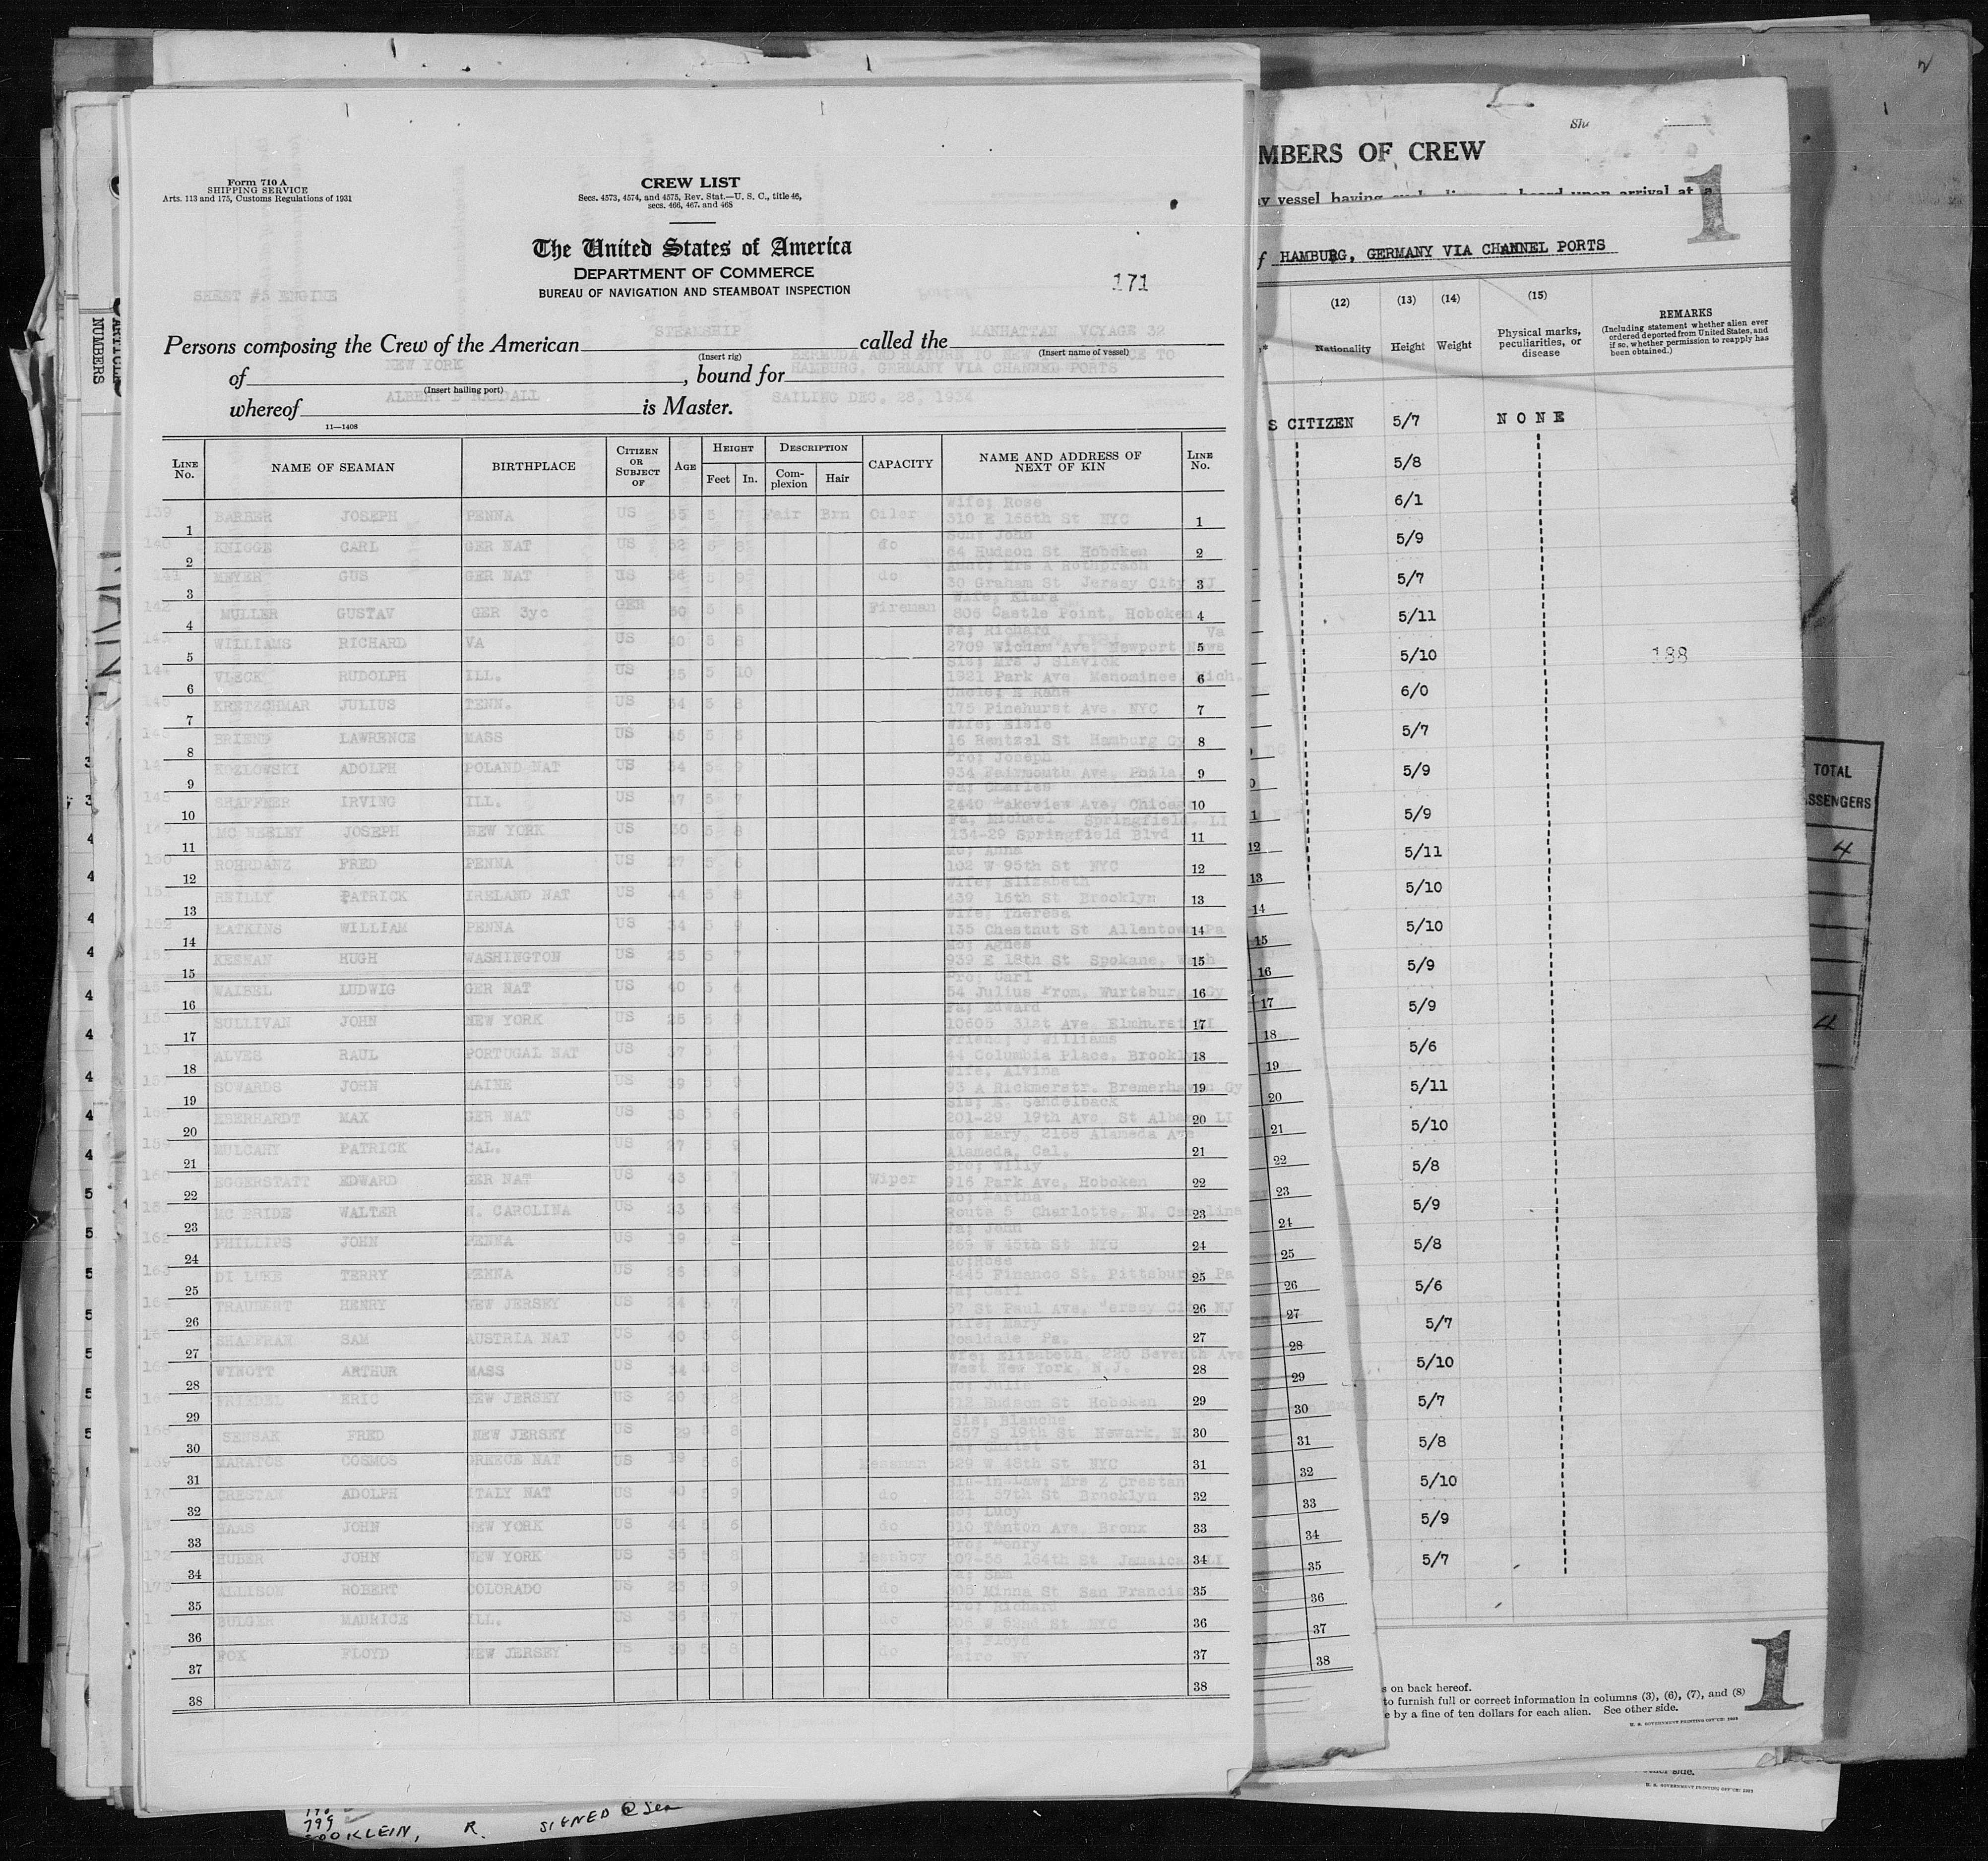 Form 710 A
SHIPPING SERVICE
Arts. 113 and 175, Customs Regulations of 1931
CREW LIST
Secs. 4573, 4574, and 4575, Rev. Stat.—U. S. C., title 46,
secs. 466, 467, and 468
The United States of America
DEPARTMENT OF COMMERCE
BUREAU OF NAVIGATION AND STEAMBOAT INSPECTION
171
SHEET #5 ENGINE
Persons composing the Crew of the American STEAMSHIP called the MANHATTAN VOYAGE 32
(Insert rig) (Insert name of vessel)
of NEW YORK, bound for BERMUDA AND RETURN TO NEW YORK THENCE TO
HAMBURG, GERMANY VIA CHANNEL PORTS
(Insert hailing port)
whereof ALBERT B RANDALL is Master. SAILING DEC. 28, 1934
11—1408
LINE No. NAME OF SEAMAN BIRTHPLACE CITIZEN OR SUBJECT OF AGE HEIGHT Feet In. DESCRIPTION Complexion Hair CAPACITY NAME AND ADDRESS OF NEXT OF KIN LINE No.
139 BARBER JOSEPH PENNA US 35 5 7 Fair Brn Oiler Wife; Rose 310 E 166th St NYC 1
140 KNIGGE CARL GER NAT US 52 5 8 do Son; John 64 Hudson St Hoboken 2
141 MEYER GUS GER NAT US 5 9 do Aunt; Mrs A 30 Graham St Jersey City NJ 3
142 MULLER GUSTAV GER 3yc GER 30 5 5 Fireman Wife; Klara 806 Castle Point, Hoboken 4
WILLIAMS RICHARD VA US 40 5 8 Fa; Richard 2709 Wicham Ave, Newport News Va 5
VLECK RUDOLPH ILL. US 25 5 10 Sis; Mrs J Slavick 1921 Park Ave Menominee, Mich. 6
145 KRETZCHMAR JULIUS TENN. US 34 5 8 Uncle; 175 Pinehurst Ave, NYC 7
BRIEND LAWRENCE MASS US 5 Wife; Elsie 16 Rentzel St Hamburg Gy 8
KOZLOWSKI ADOLPH POLAND NAT US 34 5 9 Bro; Joseph 934 Fairmouth Ave, Phila. 9
SHAFFNER IRVING ILL. US 47 5 7 Fa; Charles 2440 Lakeview Ave, Chicago 10
MC NEELEY JOSEPH NEW YORK US 30 5 8 Fa, Michael Springfield, LI 134-29 Springfield Blvd 11
150 ROHRDANZ FRED PENNA US 27 5 6 Mo; Anna 102 W 95th St NYC 12
REILLY PATRICK IRELAND NAT US 44 5 8 Wife; Elizabeth 439 16th St Brooklyn 13
152 KATKINS WILLIAM PENNA US 34 5 9 Wife; Theresa 135 Chestnut St Allentown Pa 14
KESNAN HUGH WASHINGTON US 25 5 7 Mo; Agnes 939 E 18th St Spokane, Wash 15
WAIBEL LUDWIG GER NAT US 40 5 6 Bro; Carl 54 Julius Prom, Wurtsburg Gy 16
SULLIVAN JOHN NEW YORK US 25 5 9 Fa; Edward 10605 31st Ave, Elmhurst LI 17
ALVES RAUL PORTUGAL NAT US 37 5 Friend; J Williams 44 Columbia Place, Brooklyn 18
SOWARDS JOHN MAINE US 39 5 9 Wife, Alvina 93 A Rickmerstr. Bremerhaven Gy 19
EBERHARDT MAX GER NAT US 38 5 6 Sis; E. Sendelback 201-29 19th Ave, St Albans LI 20
159 MULCAHY PATRICK CAL. US 27 5 9 Mo; Mary, 2168 Alameda Ave Alameda, Cal. 21
160 EGGERSTATT EDWARD GER NAT US 43 5 7 Wiper Bro; Willy 916 Park Ave, Hoboken 22
MC BRIDE WALTER N. CAROLINA US 23 5 Mo; Martha Route 5 Charlotte, N. Carolina 23
162 PHILLIPS JOHN PENNA US 19 5 Fa; John 269 W 45th St NYC 24
163 DI LUKE TERRY PENNA US 26 5 9 Mo;Rose 7445 Finance St, Pittsburgh Pa 25
164 TRAUBERT HENRY NEW JERSEY US 24 5 7 Fa; Carl 57 St Paul Ave, Jersey City NJ 26
SHAFFRAN SAM AUSTRIA NAT US 40 5 6 Wife; Mary Coaldale, Pa. 27
166 WYNOTT ARTHUR MASS US 34 5 8 Wfe; Elizabeth, 220 Seventh Ave West New York, N.J. 28
FRIEDEL ERIC NEW JERSEY US 20 5 8 Mo; 612 Hudson St Hoboken 29
168 SENSAK FRED NEW JERSEY US 29 5 8 Sis; Blanche 657 S 19th St Newark, NJ 30
169 MARATOS COSMOS GREECE NAT US 19 5 Messman Fa; Christ 529 W 48th St NYC 31
170 CRESTAN ADOLPH ITALY NAT US 40 5 9 do Sis-in-Law; Mrs Z Crestan 821 57th St Brooklyn 32
HAAS JOHN NEW YORK US 44 5 6 do Mo; Lucy Ave, Bronx 33
172 HUBER JOHN NEW YORK US 35 5 8 Messboy Bro; Henry 107-55 164th St Jamaica LI 34
ALLISON ROBERT COLORADO US 23 5 9 do Fa; Sam 605 Minna St San Francisco 35
BULGER MAURICE ILL. US 36 5 7 do Bro; Richard 206 W 52nd St NYC 36
175 FOX FLOYD NEW JERSEY US 39 5 8 do Fa; Floyd Cairo NY 37
38 38
MBERS OF CREW
1
HAMBURG, GERMANY VIA CHANNEL PORTS
(12) (13) (14) (15) REMARKS
Nationality Height Weight Physical marks, peculiarities, or disease
(Including statement whether alien ever ordered deported from United States, and if so, whether permission to reapply has been obtained.)
S CITIZEN 5/7 NONE
5/8
6/1
5/9
5/7
5/11
5/10 188
6/0
5/7
5/9
5/9
5/11
5/10
5/10
5/9
5/9
5/6
5/11
5/10
5/8
5/9
5/8
5/6
5/7
5/10
5/7
5/8
5/10
5/9
5/7
12
13
14
15
16
17
18
19
20
21
22
23
24
25
26
27
28
29
30
31
32
33
34
35
36
37
38
s on back hereof.
to furnish full or correct information in columns (3), (6), (7), and (8)
e by a fine of ten dollars for each alien. See other side.
1
TOTAL
SSENGERS
4
4
NUMBERS
799
KLEIN, R. SIGNED @ Sea